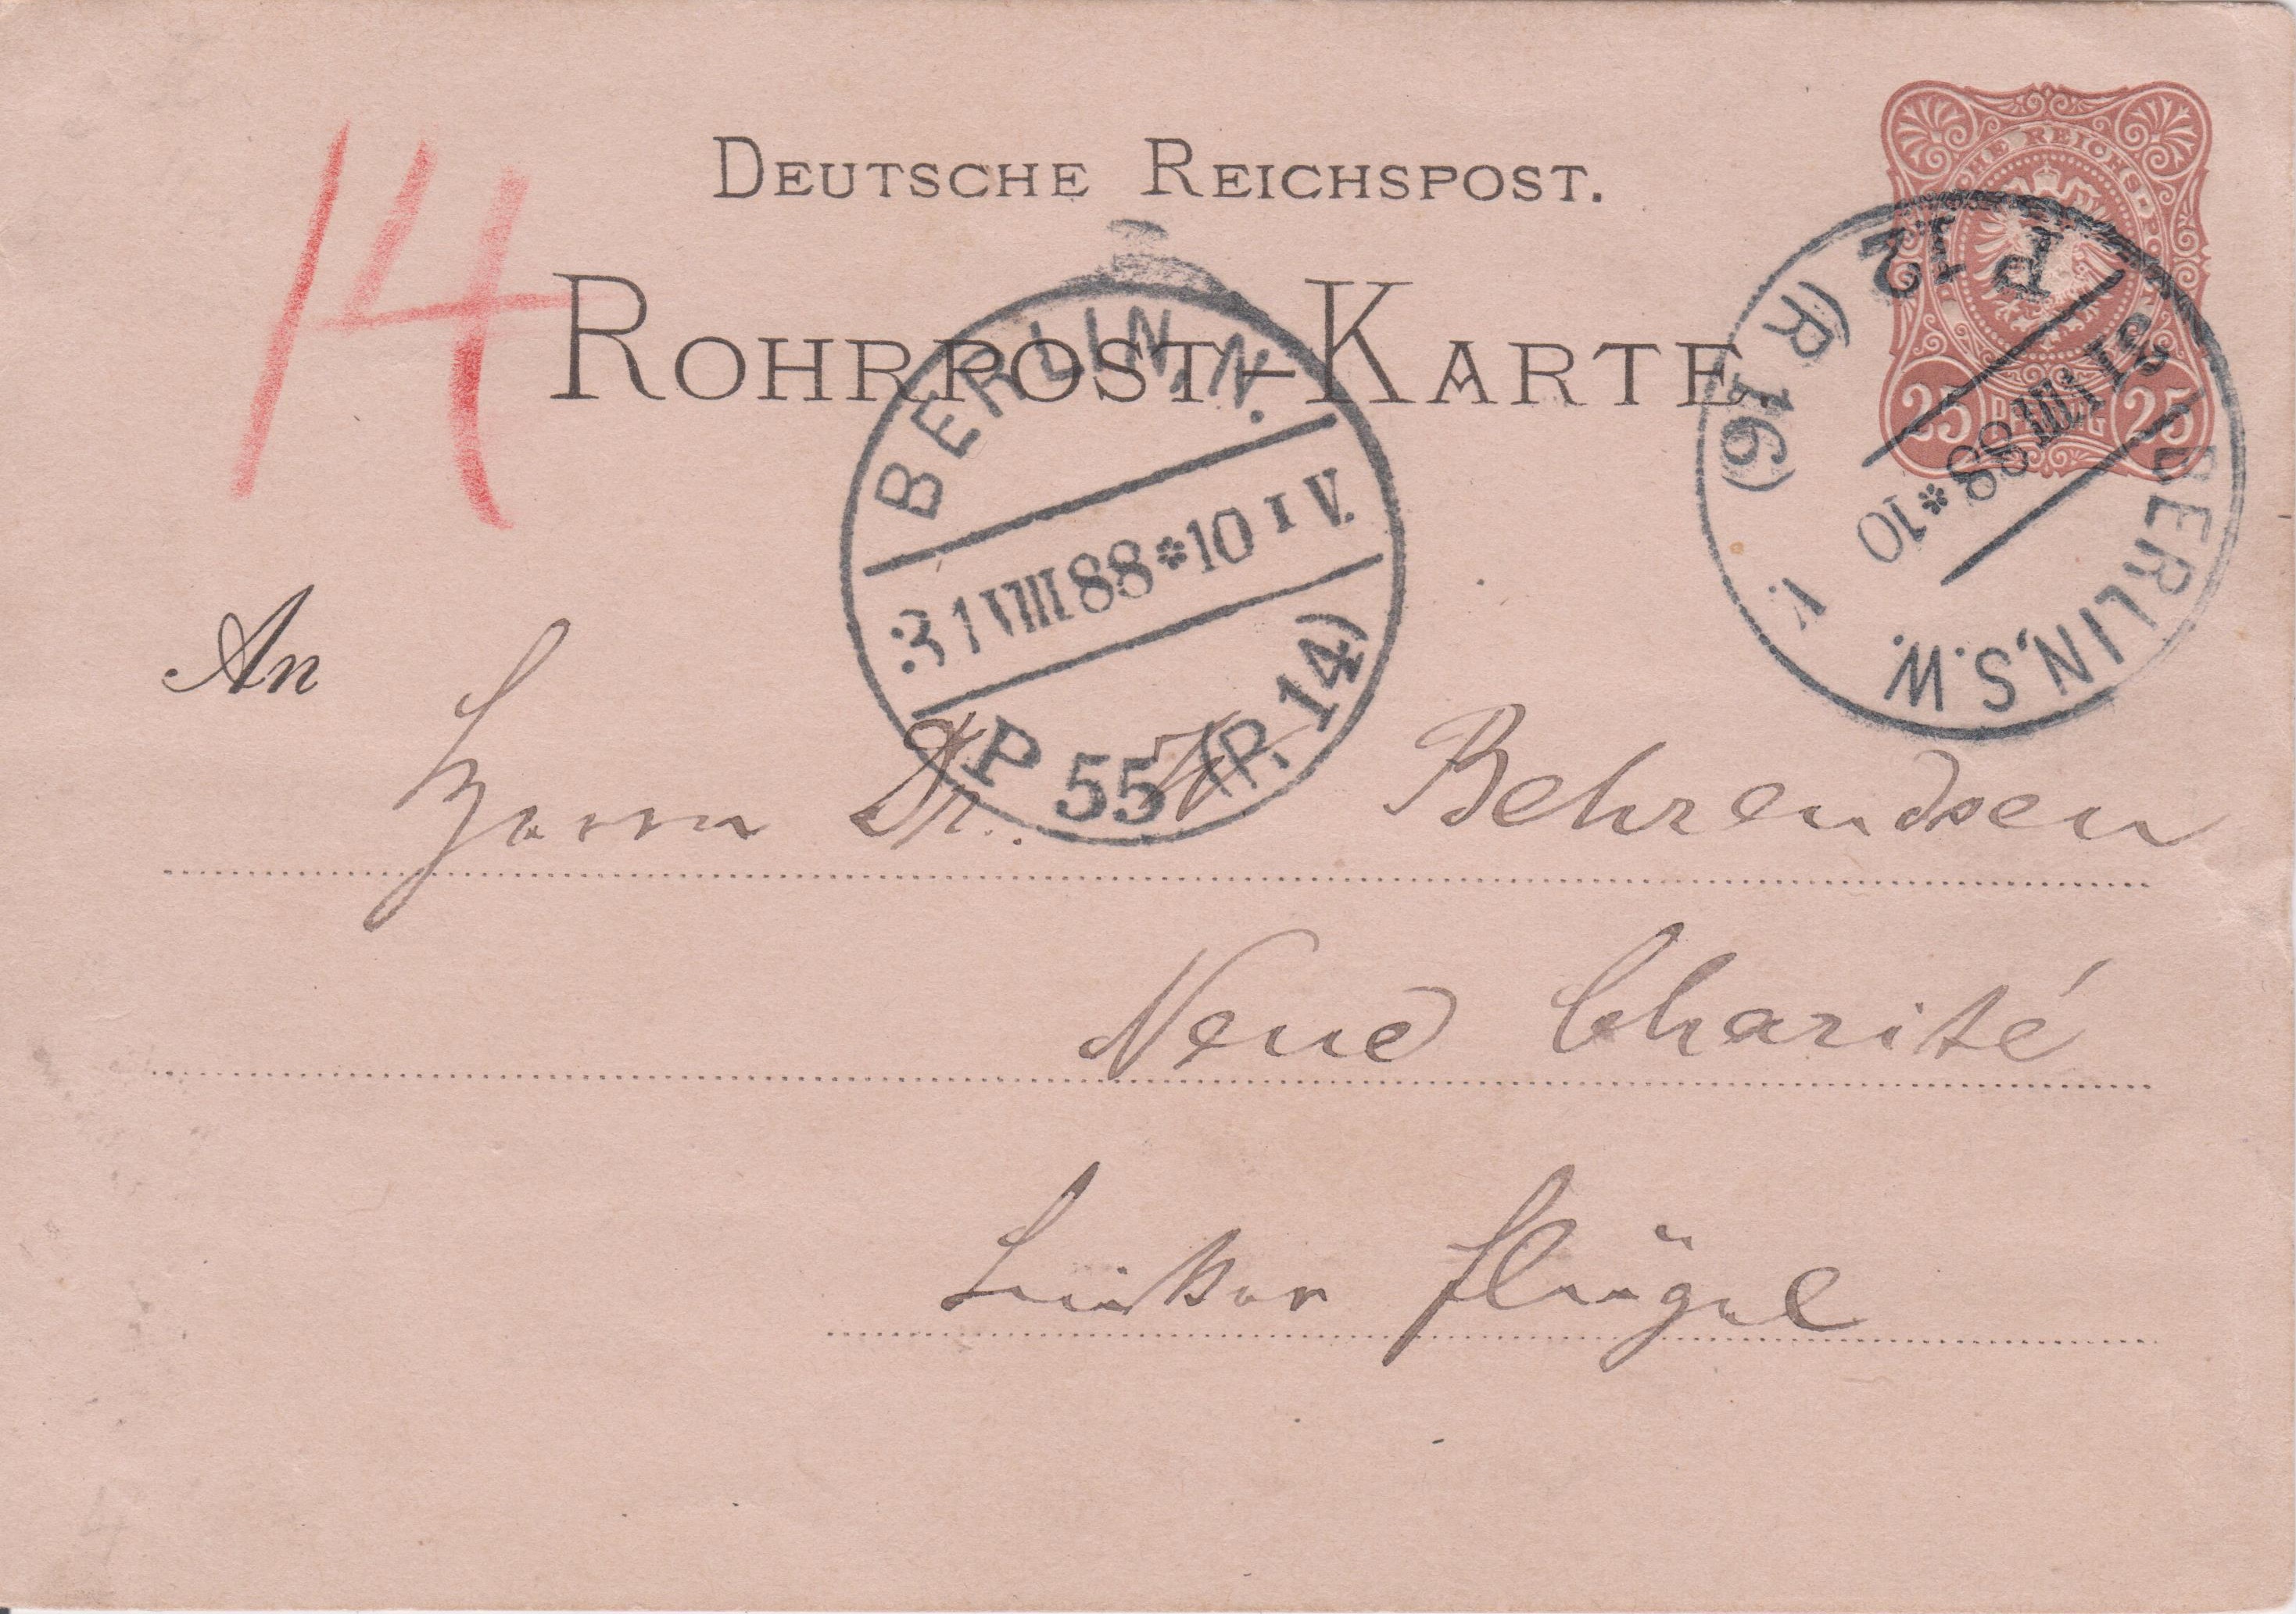 14
DEUTSCHE REICHSPOST.
ROHRPOST-KARTE.
DEUTSCHE REICHSPOST
25 PFENNIG 25
BERLIN, S.W.
31 VIII 88 * 10
V.
P 12 (R 16)
BERLIN, N.
31 VIII 88 * 10 I V.
P 55 (R 14)
An
Herrn Dr. Behrendsen
Neue Charité
Linker Flügel